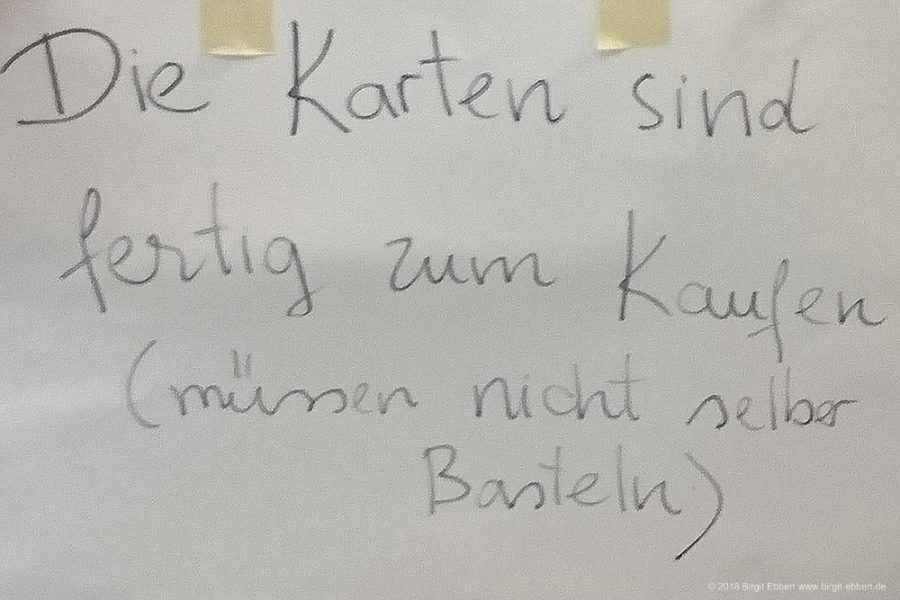 Die Karten sind
fertig zum Kaufen
(müssen nicht selber
Basteln)
© 2018 Birgit Ebbert www.birgit-ebbert.de